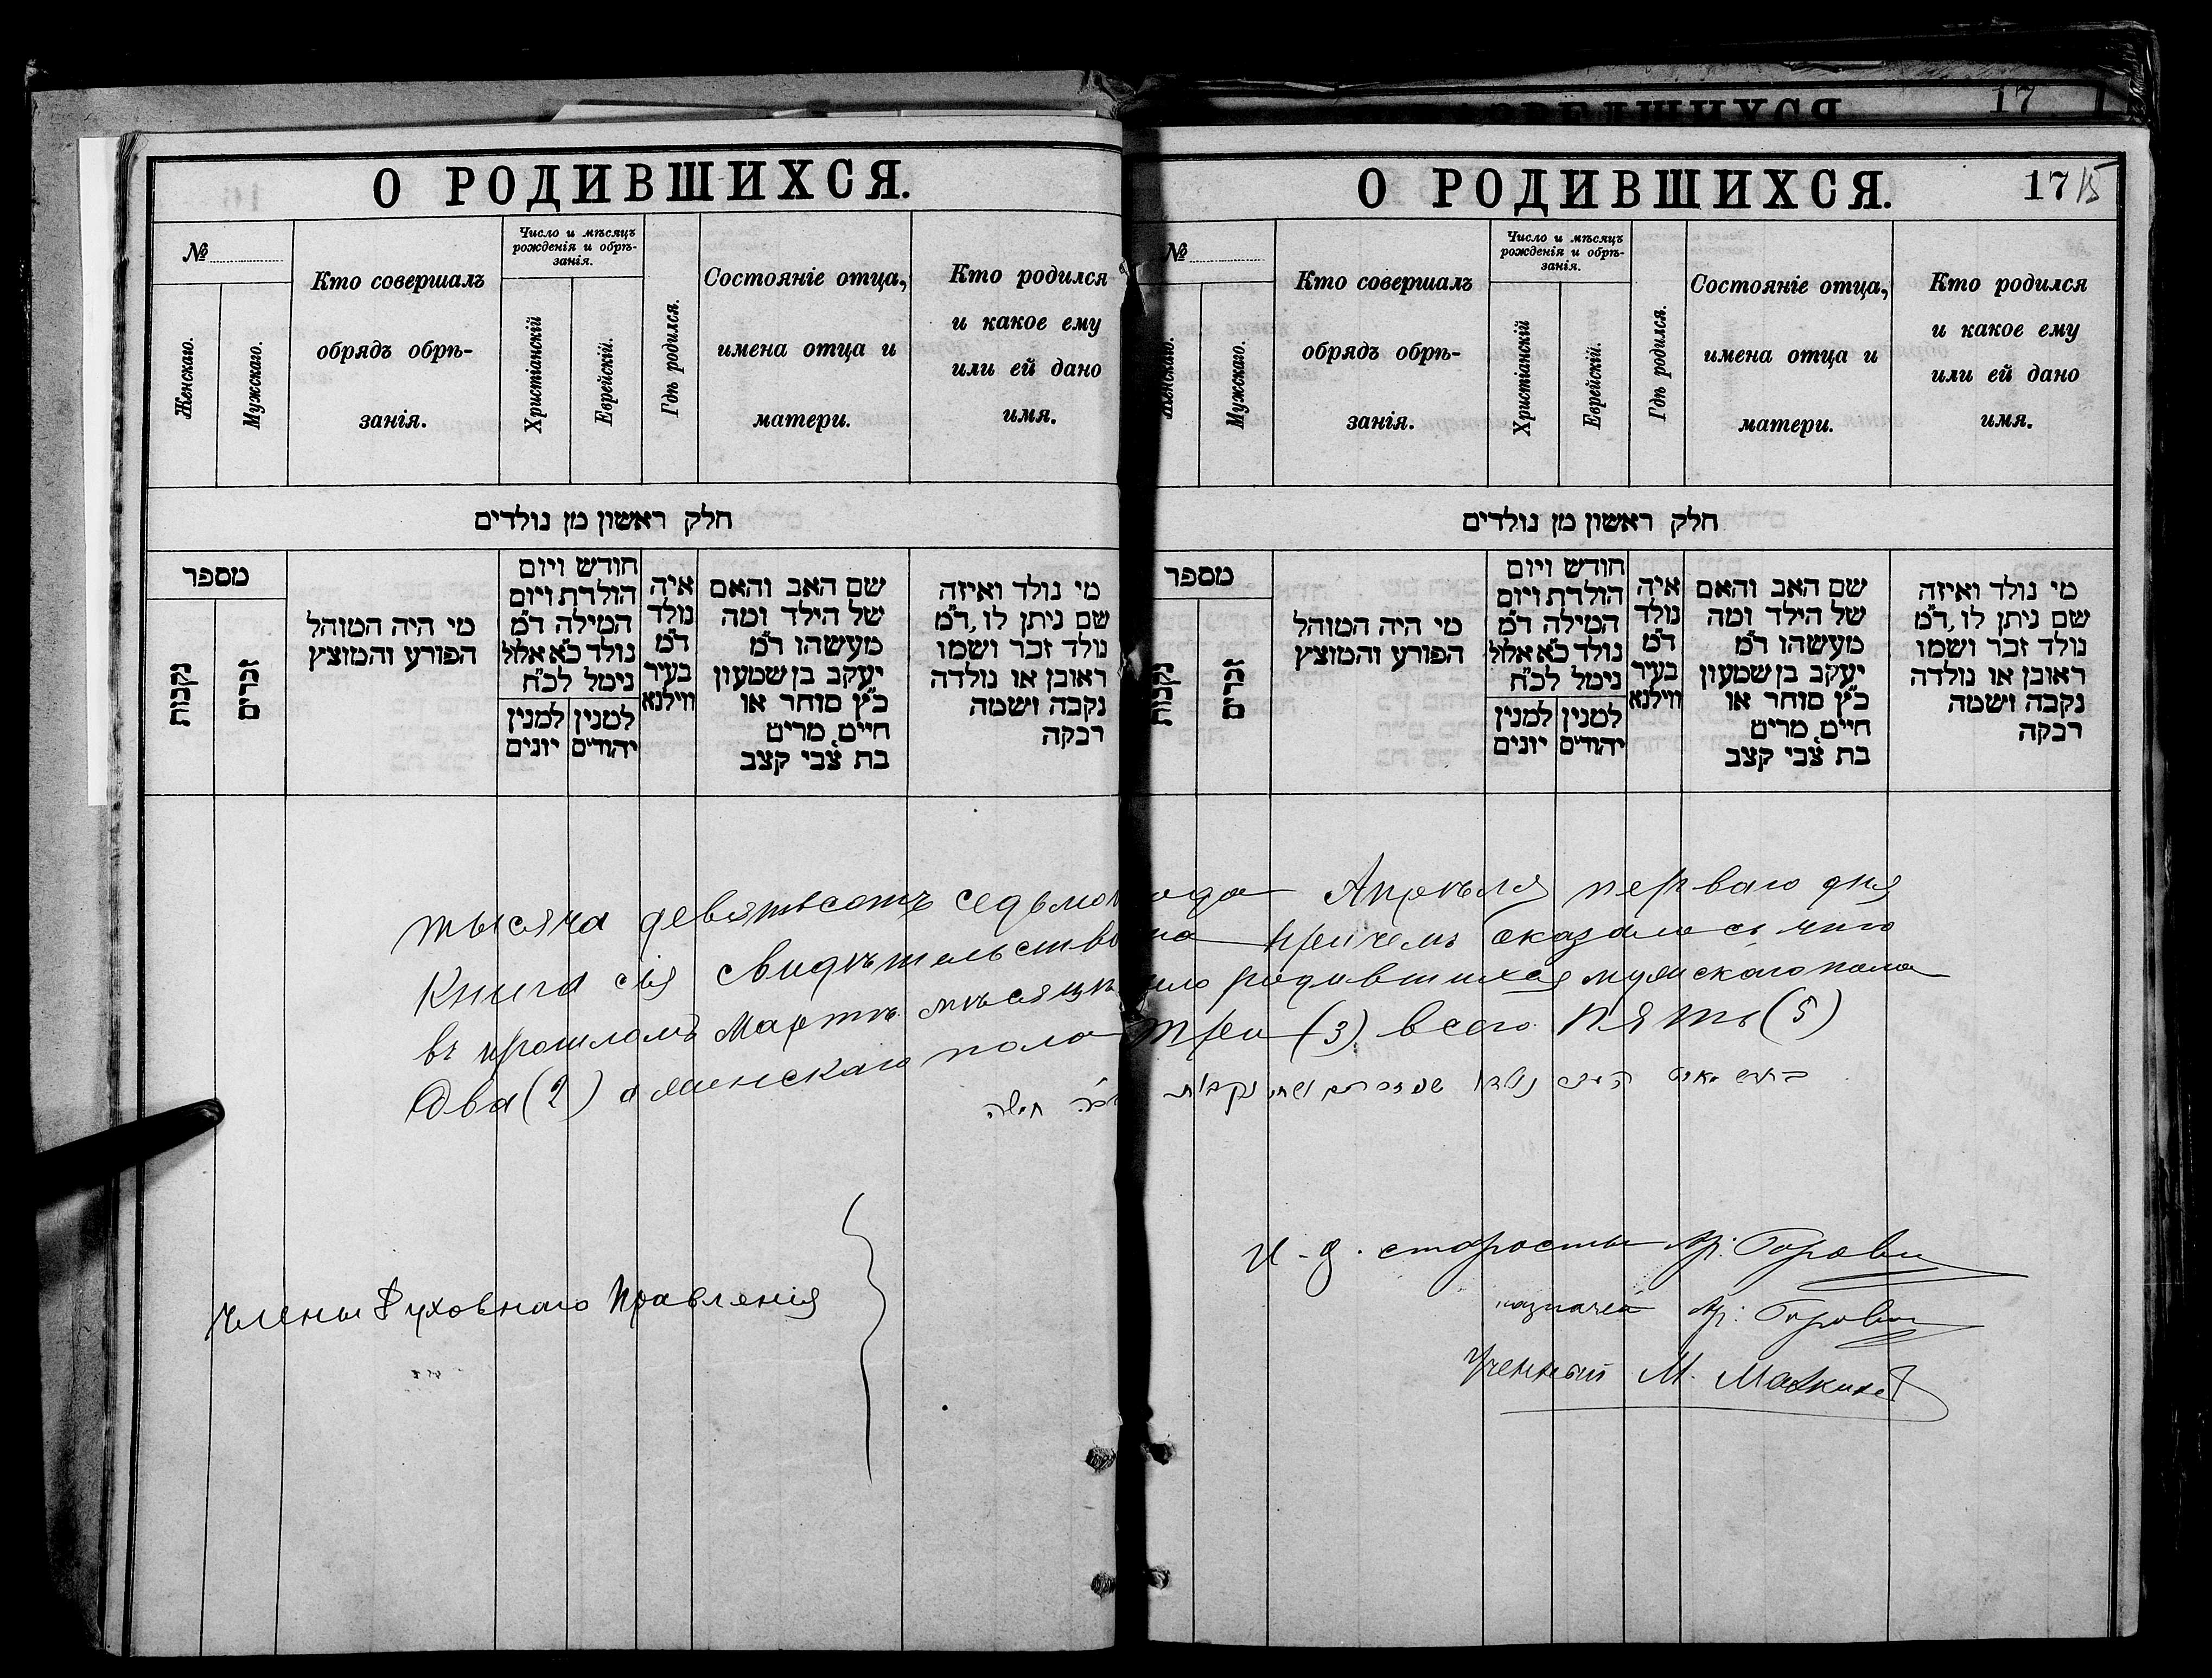 17
О РОДИВШИХСЯ.
№
Женскаго.
Мужскаго.
Кто совершалъ
обрядъ обрѣ-
занія.
Число и мѣсяцъ
рожденія и обрѣ-
занія.
Христіанскій
Еврейскій.
Гдѣ родился.
Состояніе отца,
имена отца и
матери.
Кто родился
и какое ему
или ей дано
имя.
חלק ראשון מן נולדים
מספר
נקבות
זכרים
מי היה המוהל
הפורע והמוצץ
חודש ויום
הולדת ויום
המילה ד״מ
נולד כ״א אלול
נימל לכ״ח
למנין יונים
למנין יהודים
איה
נולד
ד״מ
בעיר
ווילנא
שם האב והאם
של הילד ומה
מעשהו ד״מ
יעקב בן שמעון
כ״ץ סוחר או
חיים, מרים
בת צבי קצב
מי נולד ואיזה
שם ניתן לו, ד״מ
נולד זכר ושמו
ראובן או נולדה
נקבה ושמה
רבקה
О РОДИВШИХСЯ.
17 15
№
Женскаго.
Мужскаго.
Кто совершалъ
обрядъ обрѣ-
занія.
Число и мѣсяцъ
рожденія и обрѣ-
занія.
Христіанскій
Еврейскій.
Гдѣ родился.
Состояніе отца,
имена отца и
матери.
Кто родился
и какое ему
или ей дано
имя.
חלק ראשון מן נולדים
מספר
נקבות
זכרים
מי היה המוהל
הפורע והמוצץ
חודש ויום
הולדת ויום
המילה ד״מ
נולד כ״א אלול
נימל לכ״ח
למנין יונים
למנין יהודים
איה
נולד
ד״מ
בעיר
ווילנא
שם האב והאם
של הילד ומה
מעשהו ד״מ
יעקב בן שמעון
כ״ץ סוחר או
חיים, מרים
בת צבי קצב
מי נולד ואיזה
שם ניתן לו, ד״מ
נולד זכר ושמו
ראובן או נולדה
נקבה ושמה
רבקה
тысяча девятьсотъ седьмого года Апрѣля перваго дня
Книга сія свидѣтельствована причемъ оказалось что
въ прошломъ Мартѣ мѣсяцѣ было родившихся мужскаго пола
Два (2) а женскаго пола три (3) всего пять (5)
נקבות
Члены Духовнаго Правленія
И. д. старосты
казначей
Ученный М.